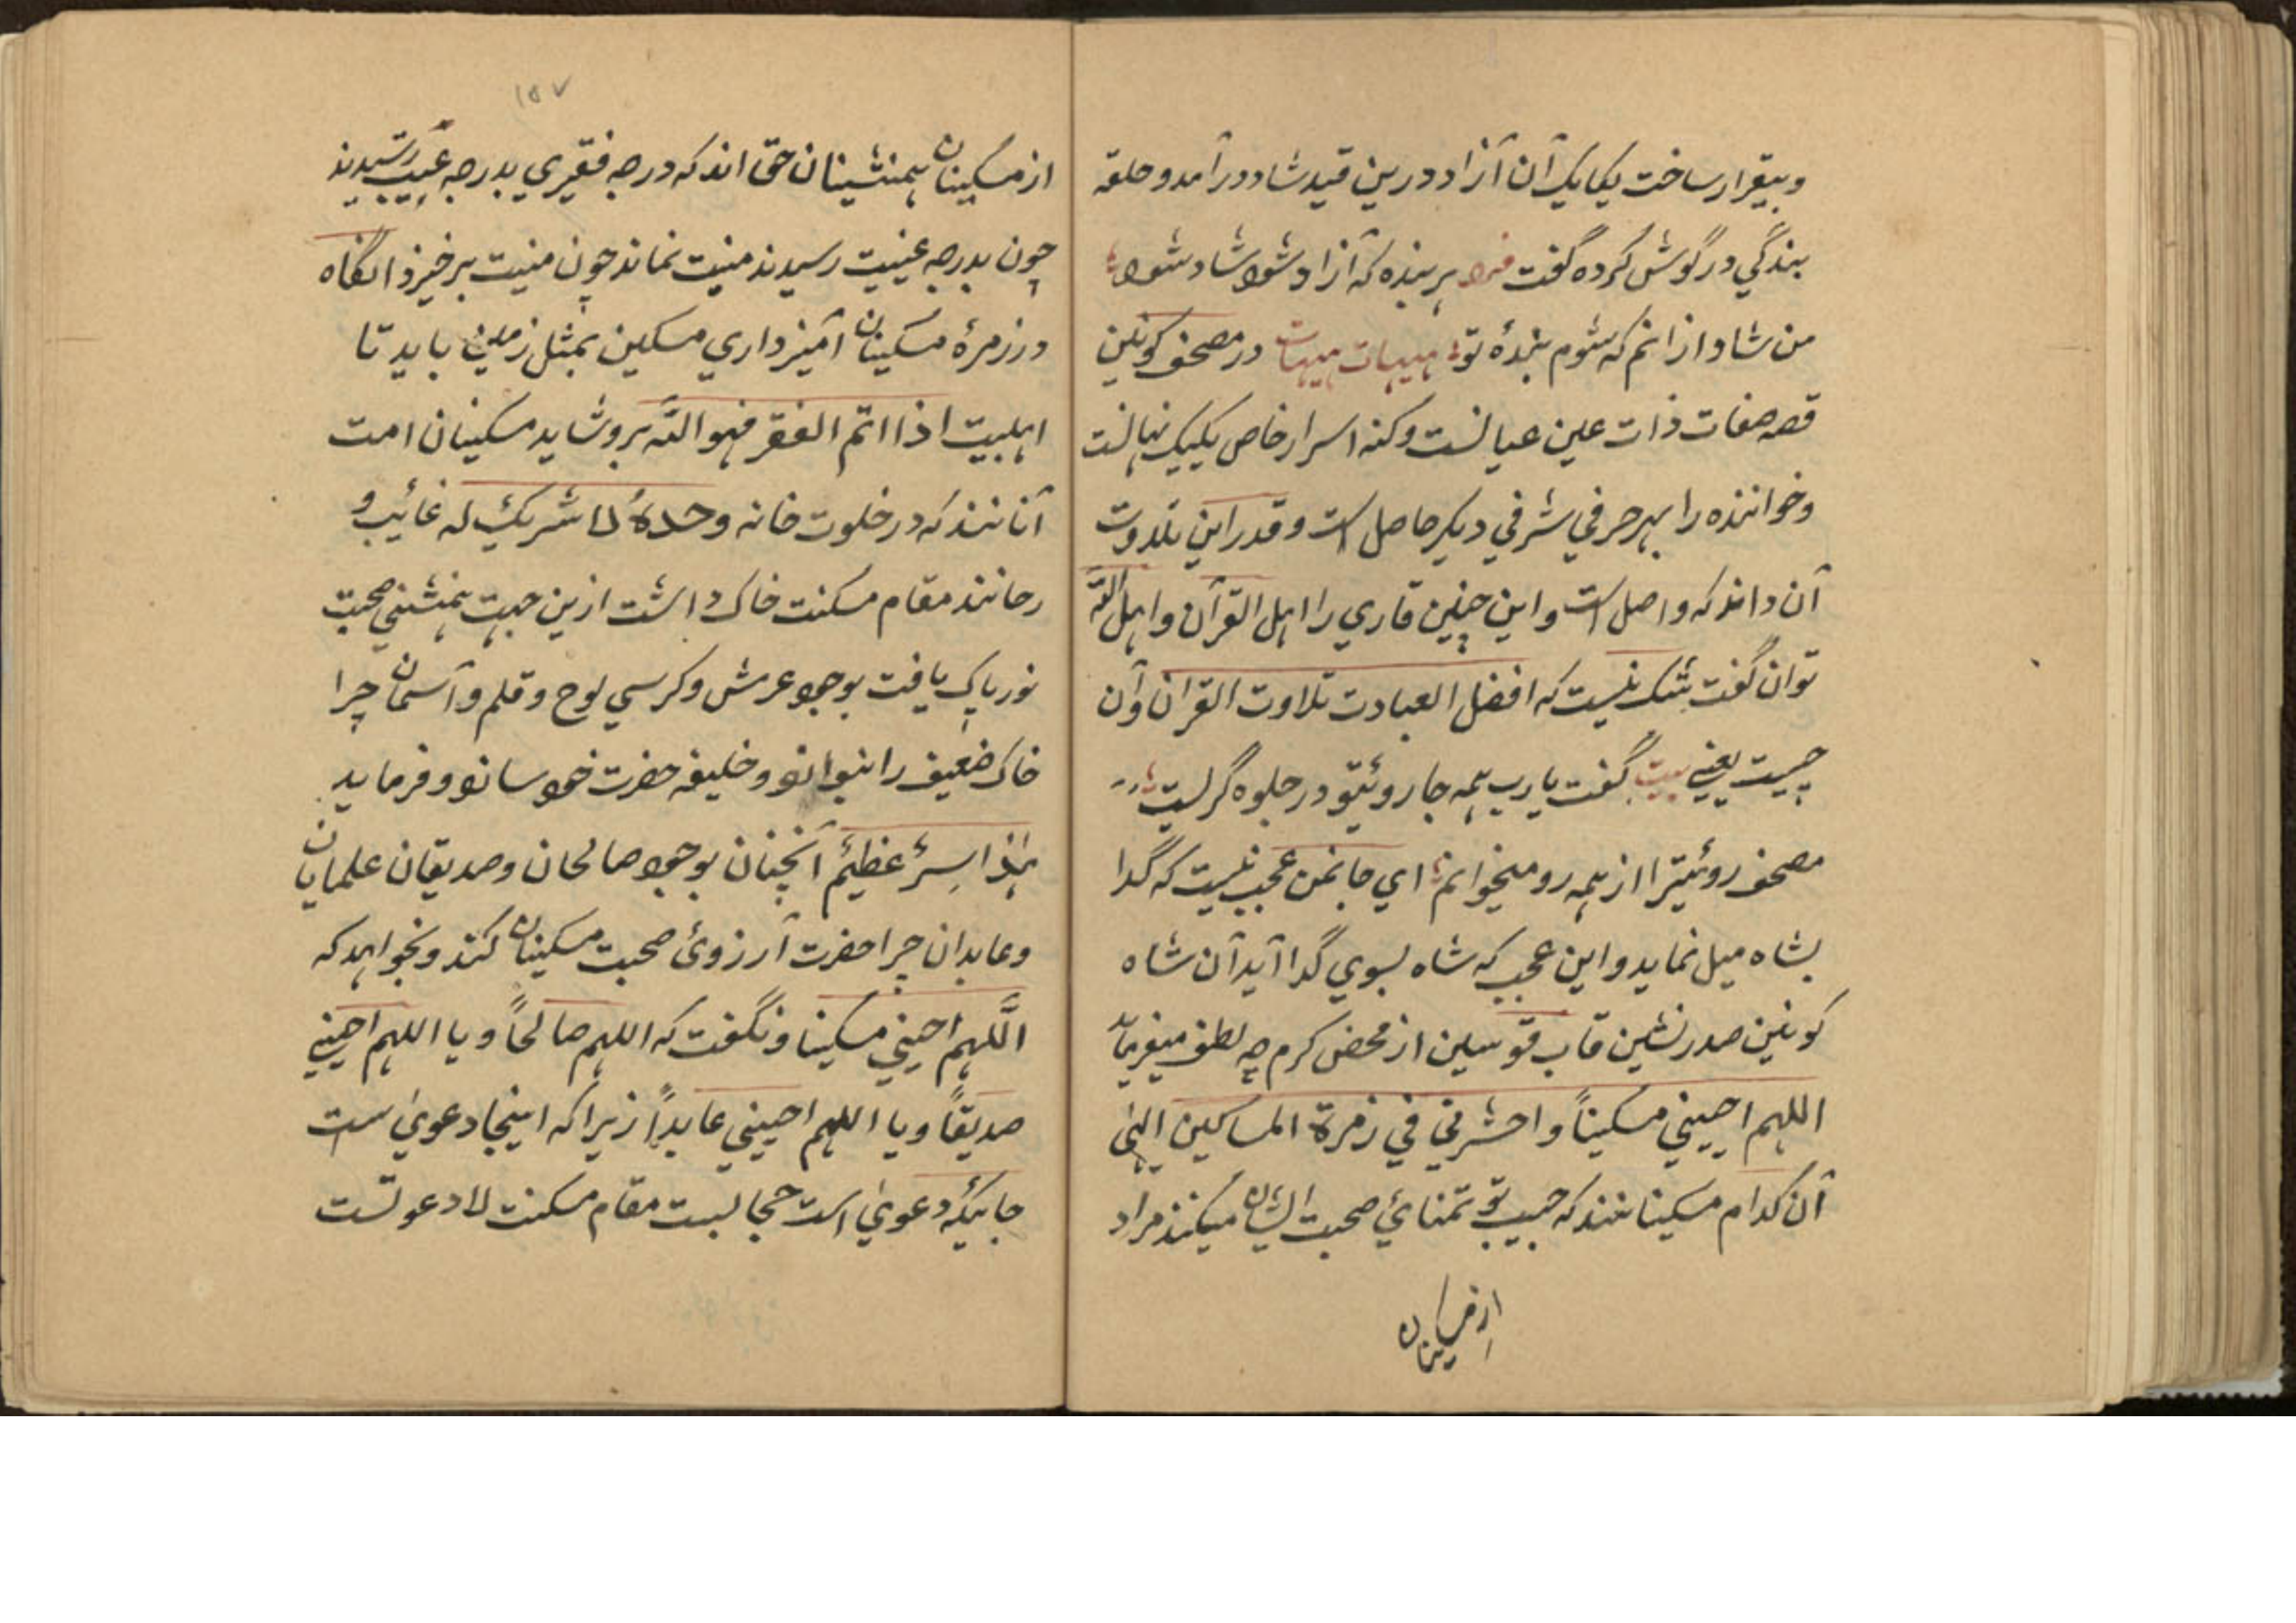 و بیقرار ساخت یکایک آن آزاد درین قید شاد درآمد و حلقه
بندگي در گوش کرده گفت فرد هر بنده که آزاد شود شاد شود
من شاد ازانم که شوم بندهٔ تو هیهات هیهات در مصحف کونین
قصه صفات ذات عین عیانست و کنه اسرار خاص یکیک نهانست
و خواننده را بهر حرفي شرفي دیگر حاصل است و قدر این تلاوت
آن داند که واصل است و این چنین قاري را اهل القرآن و اهل الله
توان گفت شک نیست که افضل العبادت تلاوت القران و آن
چیست یعني بیت گفت یا رب همه جا روئیتو در جلوه گریست
مصحف روئیترا از همه رو میخوانم اي جانمن عجب نیست که گدا
بشاه میل نماید و این عجب که شاه بسوي گدا آید آن شاه
کونین صدرنشین قاب قوسین از محض کرم چه لطف میفرماید
اللهم احیيني مسکیناً و احشرني في زمرة المساکین الهٰی
آن کدام مسکینانند که حبیب تو تمنائي صحبت ایشان میکنند مراد
از مسکینان
۱۵۷
از مسکینان همنشینان حق اند که درجه فقیري بدرجه رسیدند
چون بدرجه عینیت رسیدند منیت نماند چون منیت برخیزد انگاه
در زمرهٔ مسکینان آمیزداري مسکین بمثل زمین باید تا
اهلبیت اذا اتم الفقر فهو الله برو شاید مسکینان امت
آنانند که در خلوت خانه وحدهٗ لا شریک له غائب و
مقام مسکنت خاک داشت ازین جهت همنشیني صحبت
نور پاک یافت بوجود عرش و کرسي لوح و قلم و آسمان چرا
خاک ضعیف را بنواند و خلیفه حضرت خود ساند و فرماید
هٰذا سِرٌ عظیمٌ آنچنان بوجود صالحان و صدیقان علمایان
و عابدان چرا حضرت آرزوئ صحبت مسکینان کند و نخواهد که
اللّٰهم احیني مسکینا و نگفت که اللهم صالحاً و یا اللهم احیني
صدیقاً و یا اللهم احیيني عابداً زیرا که اینجا دعویٰ است
جائیکه دعویٰ است حجابست مقام مسکنت لادعوتست